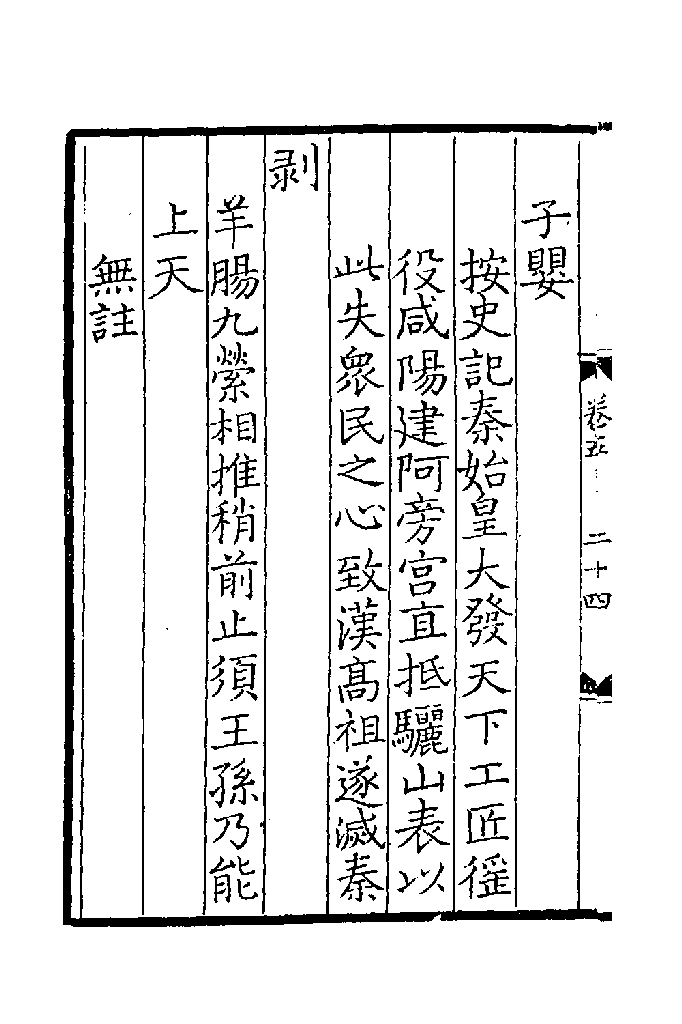 子嬰
按史記秦始皇大發天下工匠徭
役咸陽建阿旁宮直抵驪山表以
此失衆民之心致漢髙祖遂滅秦
剥
羊腸九縈相推稍前止須王孫乃能
上天
無註
卷五
二十四